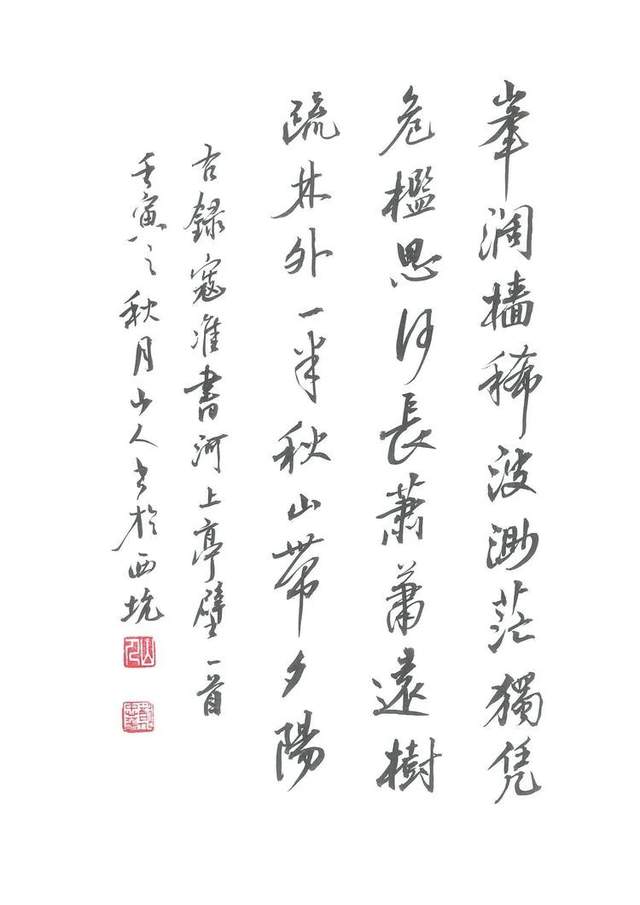 岸濶檣稀波渺茫獨凭
危檻思何長蕭蕭遠樹
疏林外一半秋山帶夕陽
右録寇准書河上亭壁一首
壬寅之秋月山人书於西坑